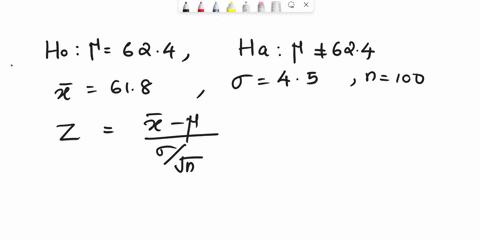 H0: μ = 62.4, Ha: μ ≠ 62.4
x̄ = 61.8, σ = 4.5, n=100
Z = x̄ - μ / σ/√n